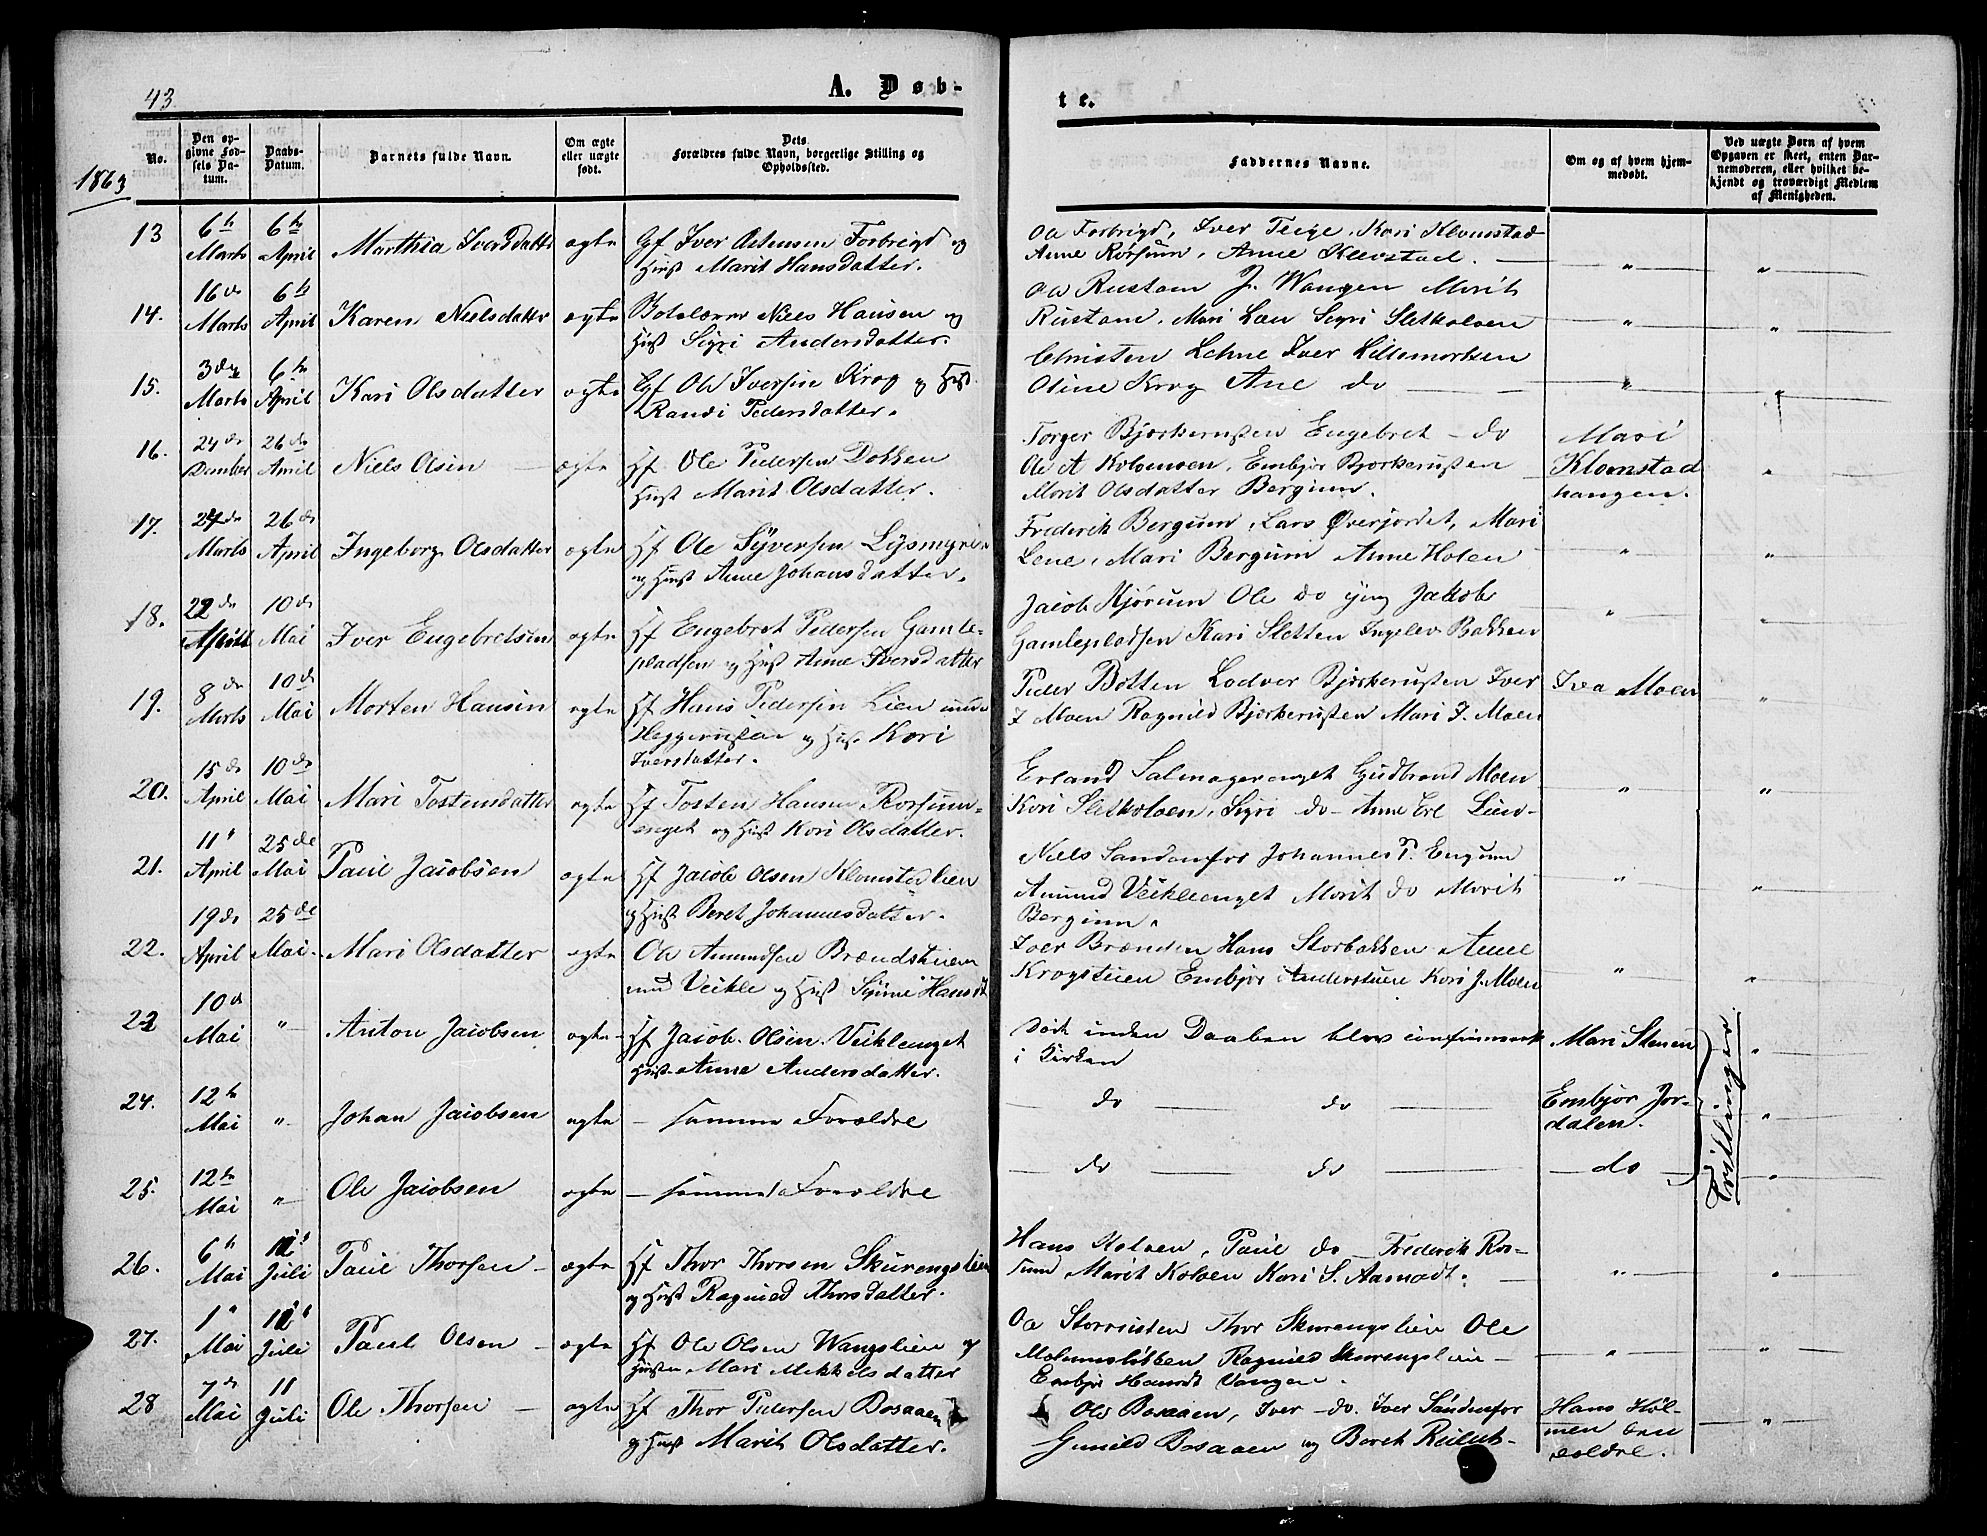 43
A. Døb-
te.
1863
No.
Den op-
givne Fød-
sels Da-
tum.
Daabs-
Datum.
Barnets fulde Navn.
Om ægte
eller uægte
født.
Dets
Forældres fulde Navn, borgerlige Stilling og
Opholdssted.
Faddernes Navne.
Om og af hvem hjem-
medøbt.
Ved uægte Børn af hvem
Opgaven er skeet, enten Bar-
nemoderen, eller hvilket be-
kjendt og troværdigt Medlem
af Menigheden.
13 6te Marts 6te April Marthia Iversdatter ægte Gf Iver Ostensen Forbrigd og
Hust Marit Hansdatter.
Ole Forbrigd, Iver Teige, Kari Klomstad
Anne Rorsum, Anne Klevstad. " "
14. 16de Marts 6te April Karen Nielsdatter ægte Niels Hansen og
Hust Sigri Andersdatter.
Ole Rustom J. Wangen Marit
Rustom, Mari Loen Sigri Sletholoen " "
15. 3die Marts 6te April Kari Olsdatter ægte Gf Ole Iversen Krog og Hust
Randi Pedersdatter.
Christen Lehne Iver Lillemorksen
Oline Krog Ane do " "
16. 24de 26de April Niels Olsen ægte Hf Ole Pedersen Dokken
Hust Marit Olsdatter.
Torger Bjorkerusten Engebret do
Ole A Kolomoen, Embjør Bjorkerusten
Marit Olsdatter Bergum.
Mari
Klomstad
hangen. "
17. 24de Marts 26de April Ingeborg Olsdatter ægte Hf Ole Syversen Lysmyren
og Hust Anne Johansdatter.
Frederik Bergum, Lars Øverjordet, Mari
Lene, Mari Bergum Anne Holen " "
18. 22de 10de Mai Iver Engebretsen ægte Hf Engebret Pedersen Gamle-
pladsen og Hust Anne Iversdatter
Jacob Ole do Jakob
Gamlepladsen Kari Sletten Ingelev Bakken " "
19. 8de Marts 10de Mai Morten Hansen ægte Hf Hans Pedersen Lien under
Heggerusten og Hust Kari
Iversdatter.
Peder Botten Lodver Bjorkerusten Iver
I Moen Ragnild Bjorkerusten Mari I. Moen
Iva Moen "
20. 15de April 10de Mai Mari Tostensdatter ægte Hf Tosten Hansen Rorsum-
enget og Hust Kari Olsdatter.
Erland Salmagerenget Gudbrand Moen
Kari Sletholoen, Sigri do Anne Erl Lien " "
21. 11" April 25de Mai Paul Jacobsen ægte Hf Jacob Olsen Klomstadlien
og Hust Beret Johannesdatter.
Niels Sandenfor Johannes P. Engum
Amund Veikleenget Marit do Marit
Bergum. " "
22. 19de April 25de Mai. Mari Olsdatter ægte Ole Amundsen Brændsteien
und Veikle og Hust Synne Hansdt
Iver Brænden Hans Storbakken Anne
Krogsteien Embjør Anderstuen Kari J. Moen " "
22 10de Mai " Anton Jacobsen ægte Hf Jacob Olsen Veiklenget
Hust Anne Andersdatter.
Døde inden Daaben blev confirmeret
i Kirken
Mari Stenen "
24. 12te Mai " Johan Jacobsen ægte — samme Forældre
— do — do —
Embjør Jor-
dalen. "
25. 12te Mai " Ole Jacobsen ægte — samme Forældre
— do — do — do "
Trillinger.
26. 6te Mai 12" Juli Paul Thorsen ægte Hf Thor Thorsen Skurengslien
og Hust Ragnild Thorsdatter.
Hans Koloen, Paul do — Frederik Ror-
sum Marit Koloen Kari S. Aamodt. " "
27. 1" Mai 12" Juli Paul Olsen ægte Hf Ole Olsen Wangslien og
Hustru Mari Mikkelsdatter
Ole Storrusten Thor Skurengslien Ole
Ragnild Skurengslien
Embjør Hansdt Vangen. " "
28 7de Mai 11 Juli Ole Thorsen ægte Hf Thor Pedersen Bosaaen
og Hust Marit Olsdatter.
Ole Bosaaen, Iver do. Iver Sandenfor
Gunild Bosaaen og Beret
Hans Høl-
men den
ældre. "